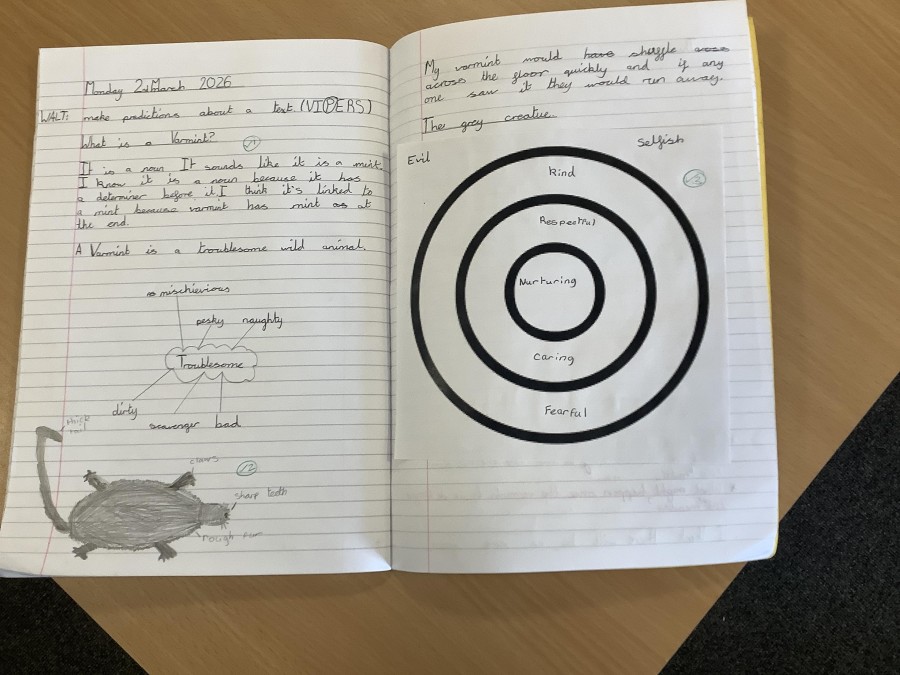 Monday 2nd March 2026
WALT: make predictions about a text. (VIPERS)
What is a Varmint?
It is a noun. It sounds like it is a mint.
I know it is a noun because it has
a determiner before it. I think it's linked to
a mint because varmint has mint as at
the end.
A Varmint is a troublesome wild animal.
mischievious
pesky naughty
Troublesome
dirty
scavenger bad
thick
tail
claws
sharp teeth
rough
My varmint would have shuffle
across the floor quickly and if any
one saw it they would run away.
The grey creatue.
Evil
Selfish
kind
Respectful
Nurturing
Caring
Fearful